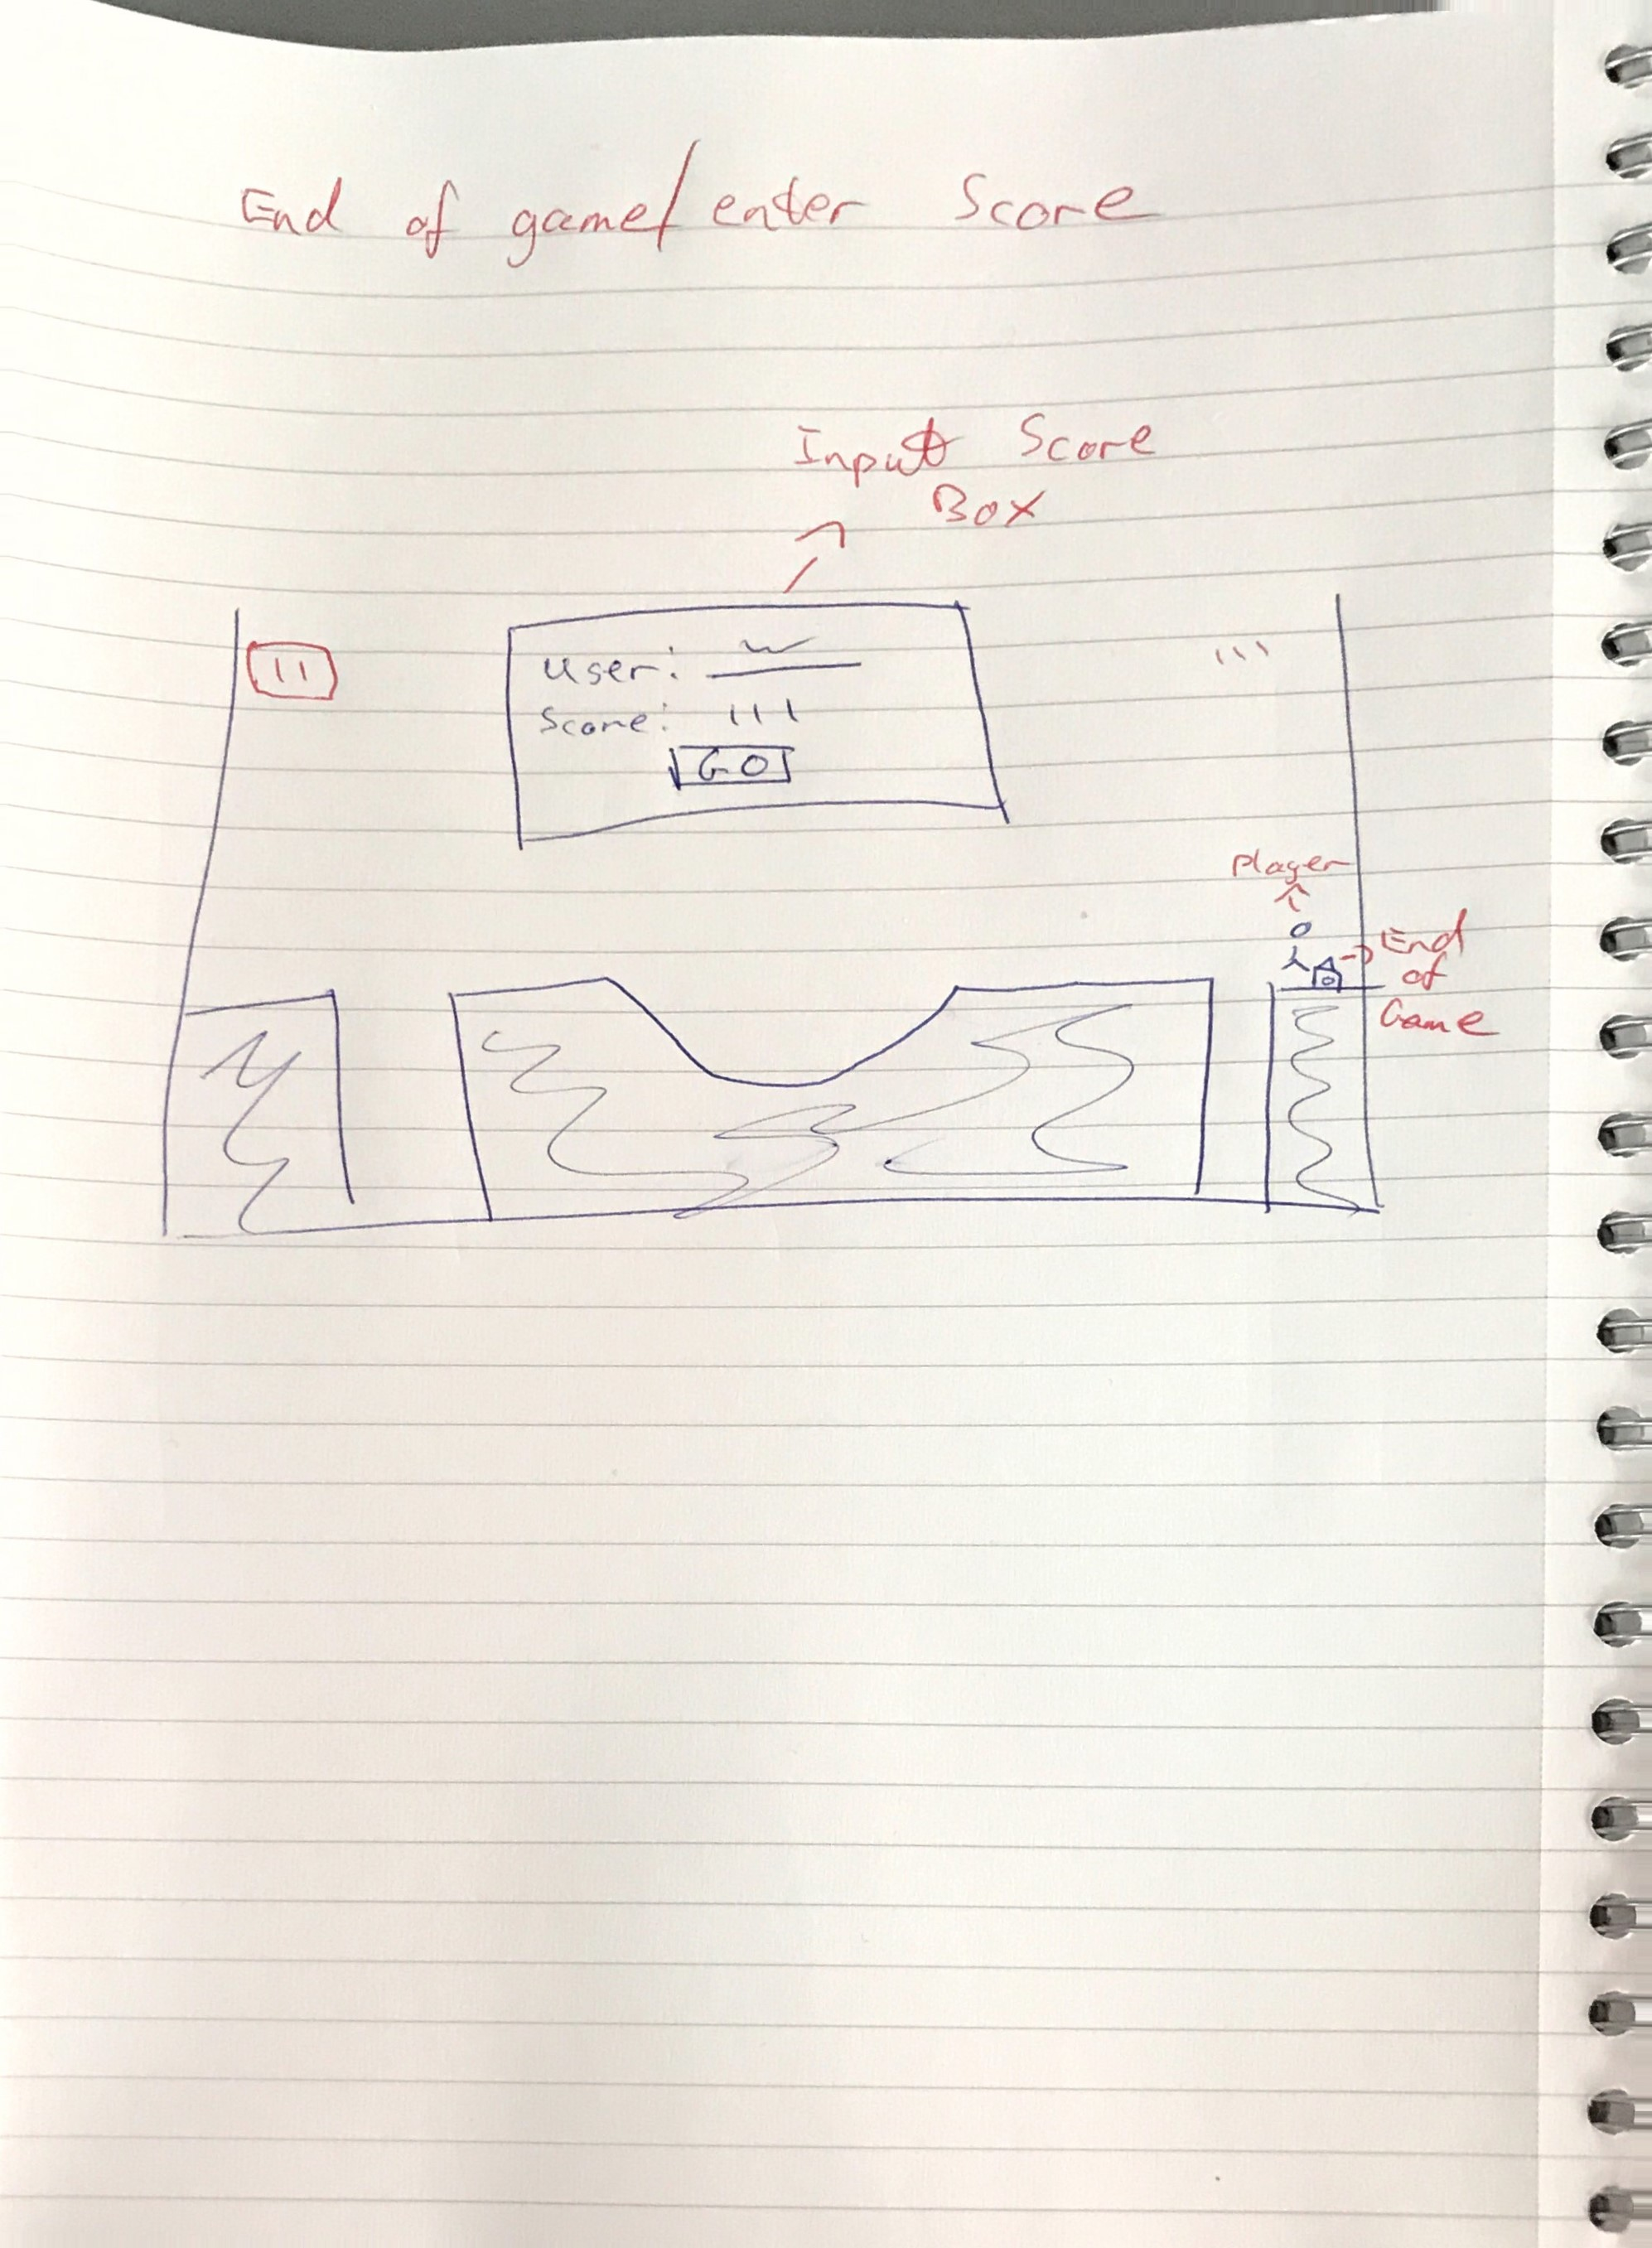 End of game/enter Score
Input Score
Box
User:
Score: 111
GO
Player
End
of
Game